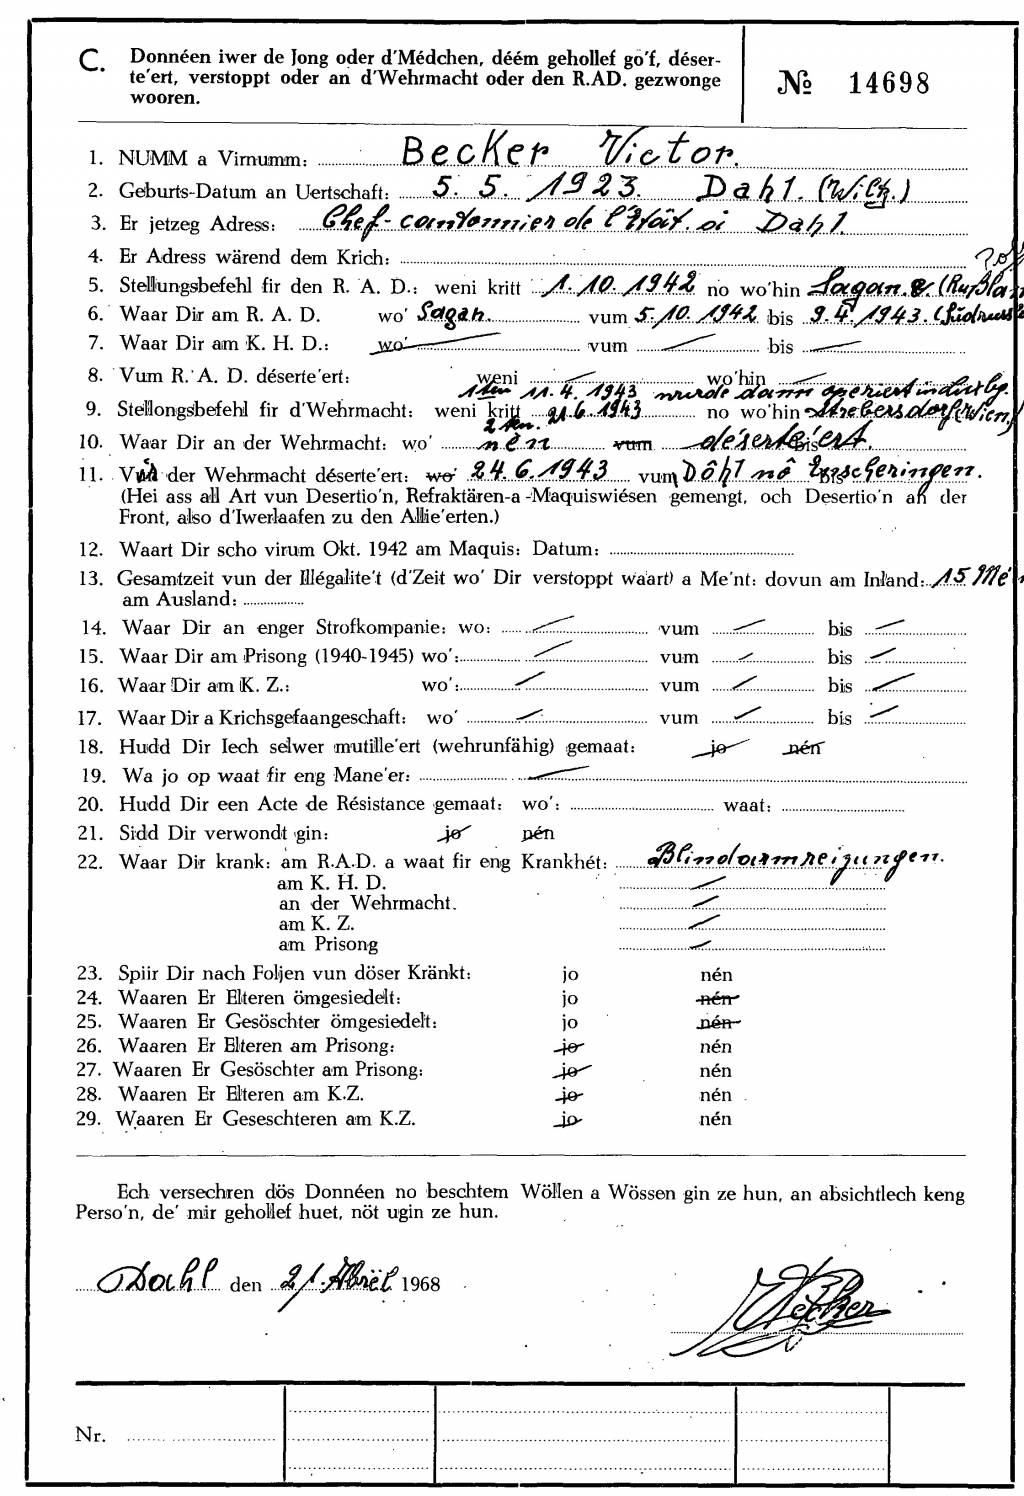 C. Donnéen iwer de Jong oder d'Médchen, déém gehollef go'f, déser-
te'ert, verstoppt oder an d'Wehrmacht oder den R.AD. gezwonge
wooren.
№ 14698
1. NUMM a Virnumm: Becker Victor.
2. Geburts-Datum an Uertschaft: 5. 5. 1923. Dahl. (Wiltz.)
3. Er jetzeg Adress: Chef-cantonnier de l'Etât. oi Dahl.
4. Er Adress wärend dem Krich:
5. Stellungsbefehl fir den R. A. D.: weni kritt 1. 10. 1942 no wo'hin Sagan.
6. Waar Dir am R. A. D. wo' Sagan. vum 5. 10. 1942 bis 9. 4. 1943.
7. Waar Dir am K. H. D.: wo' vum bis
8. Vum R. A. D. déserte'ert: weni wo'hin
1ten 11. 4. 1943 wurde dann operiert in
9. Stellongsbefehl fir d'Wehrmacht: weni kritt 21. 6. 1943 no wo'hin Strebersdorf (Wien.)
2 ten.
10. Waar Dir an der Wehrmacht: wo' nèn vum déserte'ert. bis
11. Vun der Wehrmacht déserte'ert: wo' 24. 6. 1943 vum Dôhl nô bis
(Hei ass all Art vun Desertio'n, Refraktären-a -Maquiswiésen gemengt, och Desertio'n an der
Front, also d'Iwerlaafen zu den Allie'erten.)
12. Waart Dir scho virum Okt. 1942 am Maquis: Datum:
13. Gesamtzeit vun der Illégalite't (d'Zeit wo' Dir verstoppt waart) a Me'nt: dovun am Inland: 15
am Ausland:
14. Waar Dir an enger Strofkompanie: wo: vum bis
15. Waar Dir am Prisong (1940-1945) wo': vum bis
16. Waar Dir am K. Z.: wo': vum bis
17. Waar Dir a Krichsgefaangeschaft: wo' vum bis
18. Hudd Dir Iech selwer mutille'ert (wehrunfähig) gemaat: jo nén
19. Wa jo op waat fir eng Mane'er:
20. Hudd Dir een Acte de Résistance gemaat: wo': waat:
21. Sidd Dir verwondt gin: jo nén
22. Waar Dir krank: am R.A.D. a waat fir eng Krankhét: Blindarmreizungen.
am K. H. D.
an der Wehrmacht.
am K. Z.
am Prisong
23. Spiir Dir nach Foljen vun döser Kränkt: jo nén
24. Waaren Er Elteren ömgesiedelt: jo nén
25. Waaren Er Gesöschter ömgesiedelt: jo nén
26. Waaren Er Elteren am Prisong: jo nén
27. Waaren Er Gesöschter am Prisong: jo nén
28. Waaren Er Elteren am K.Z. jo nén
29. Waaren Er Geseschteren am K.Z. jo nén
Ech versechren dös Donnéen no beschtem Wöllen a Wössen gin ze hun, an absichtlech keng
Perso'n, de' mir gehollef huet, nöt ugin ze hun.
Dahl den 21. Abrël 1968
VBecker
Nr.